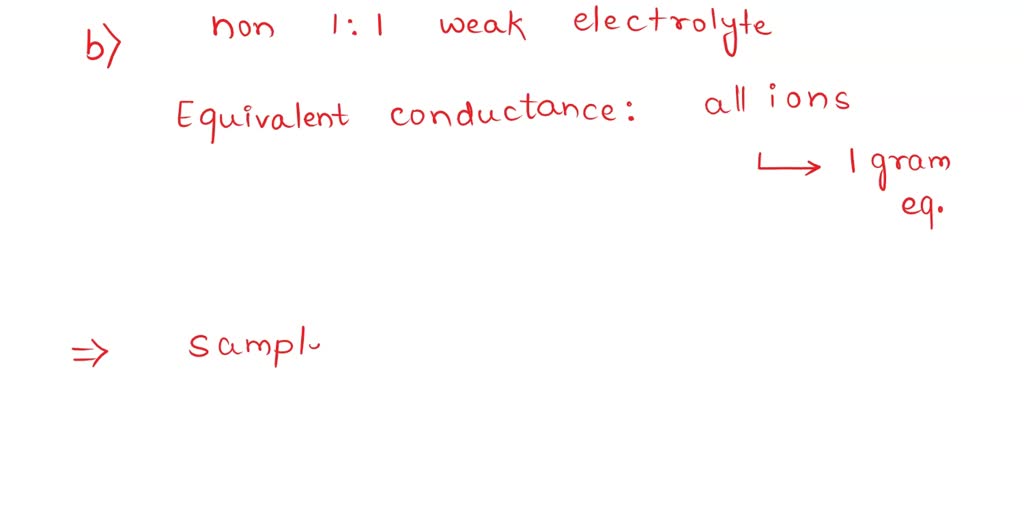 b) non 1:1 weak electrolyte
Equivalent conductance: all ions
↳ 1 gram
eq.
⇒ sampl